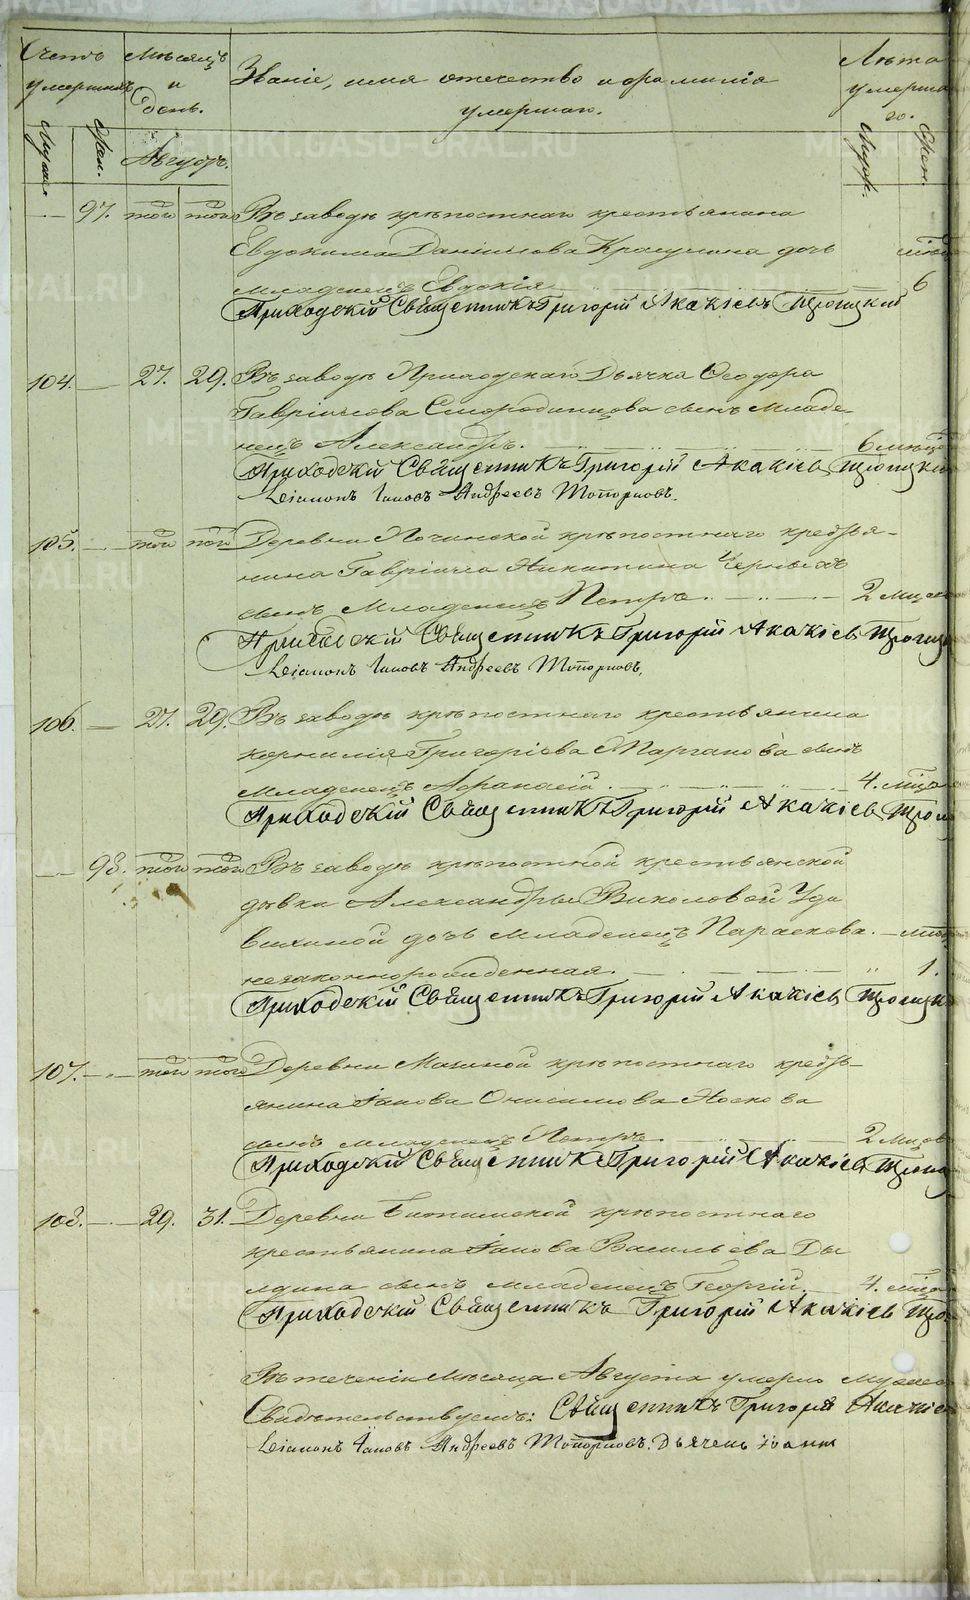 Счетъ умершихъ
Мѣсяцъ и день.
Званіе, имя отечество и фамилія умершаго.
Лѣта умерша го.
Муж. Жен. Августъ. Муж. Жен.
97. той той Въ заводѣ крѣпостнаго крестьянина
Евдокима Даніилова дочь
младенецъ Евдокія 6
Приходскій Священникъ Григорій Акакіевъ Троицкій
104. 27. 29. Въ заводѣ Приходскаго Дьячка Ѳеодора
Гавріилова Смородинцова сынъ младе-
нецъ Александръ. 6 мѣсяц
Приходскій Священникъ Григорій Акакіевъ Троицкій
Діаконъ Іаковъ Андреевъ Топорковъ.
105. той той Деревни Починской крѣпостнаго кресть-
янина Гавріила Никитина Черныхъ
сынъ Младенецъ Петръ. 2 мѣсяц
Приходскій Священникъ Григорій Акакіевъ Троицк
Діаконъ Іаковъ Андреевъ Топорковъ.
106. 27. 29. Въ заводѣ крѣпостнаго крестьянина
Корнилія Григорьева сынъ
младенецъ Афанасій. 4. мѣсяц
Приходскій Священникъ Григорій Акакіевъ Трои
98. той той Въ заводѣ крѣпостной крестьянской
дѣвки Александры Виколовой Уди
вихиной дочь младенецъ Параскева.
незаконнорожденная. 1.
Приходскій Священникъ Григорій Акакіевъ Троицк
107. той той Деревни Мазиной крѣпостнаго кресть-
янина Іакова Онисимова Носкова
сынъ младенецъ Петръ. 2 мѣсяц
Приходскій Священникъ Григорій Акакіевъ Трои
108. 29. 31. Деревни Битимской крѣпостнаго
крестьянина Іакова Васильева Ды
лдина сынъ младенецъ Георгій. 4. мѣсяц
Приходскій Священникъ Григорій Акакіевъ Тро
Въ теченіи Мѣсяца Августа умерло Мужес
Свидѣтельствуемъ: Священникъ Григорій Акакіев
Діаконъ Іаковъ Андреевъ Топорковъ. Дьячекъ Іоанн
METRIKI.GASO-URAL.RU